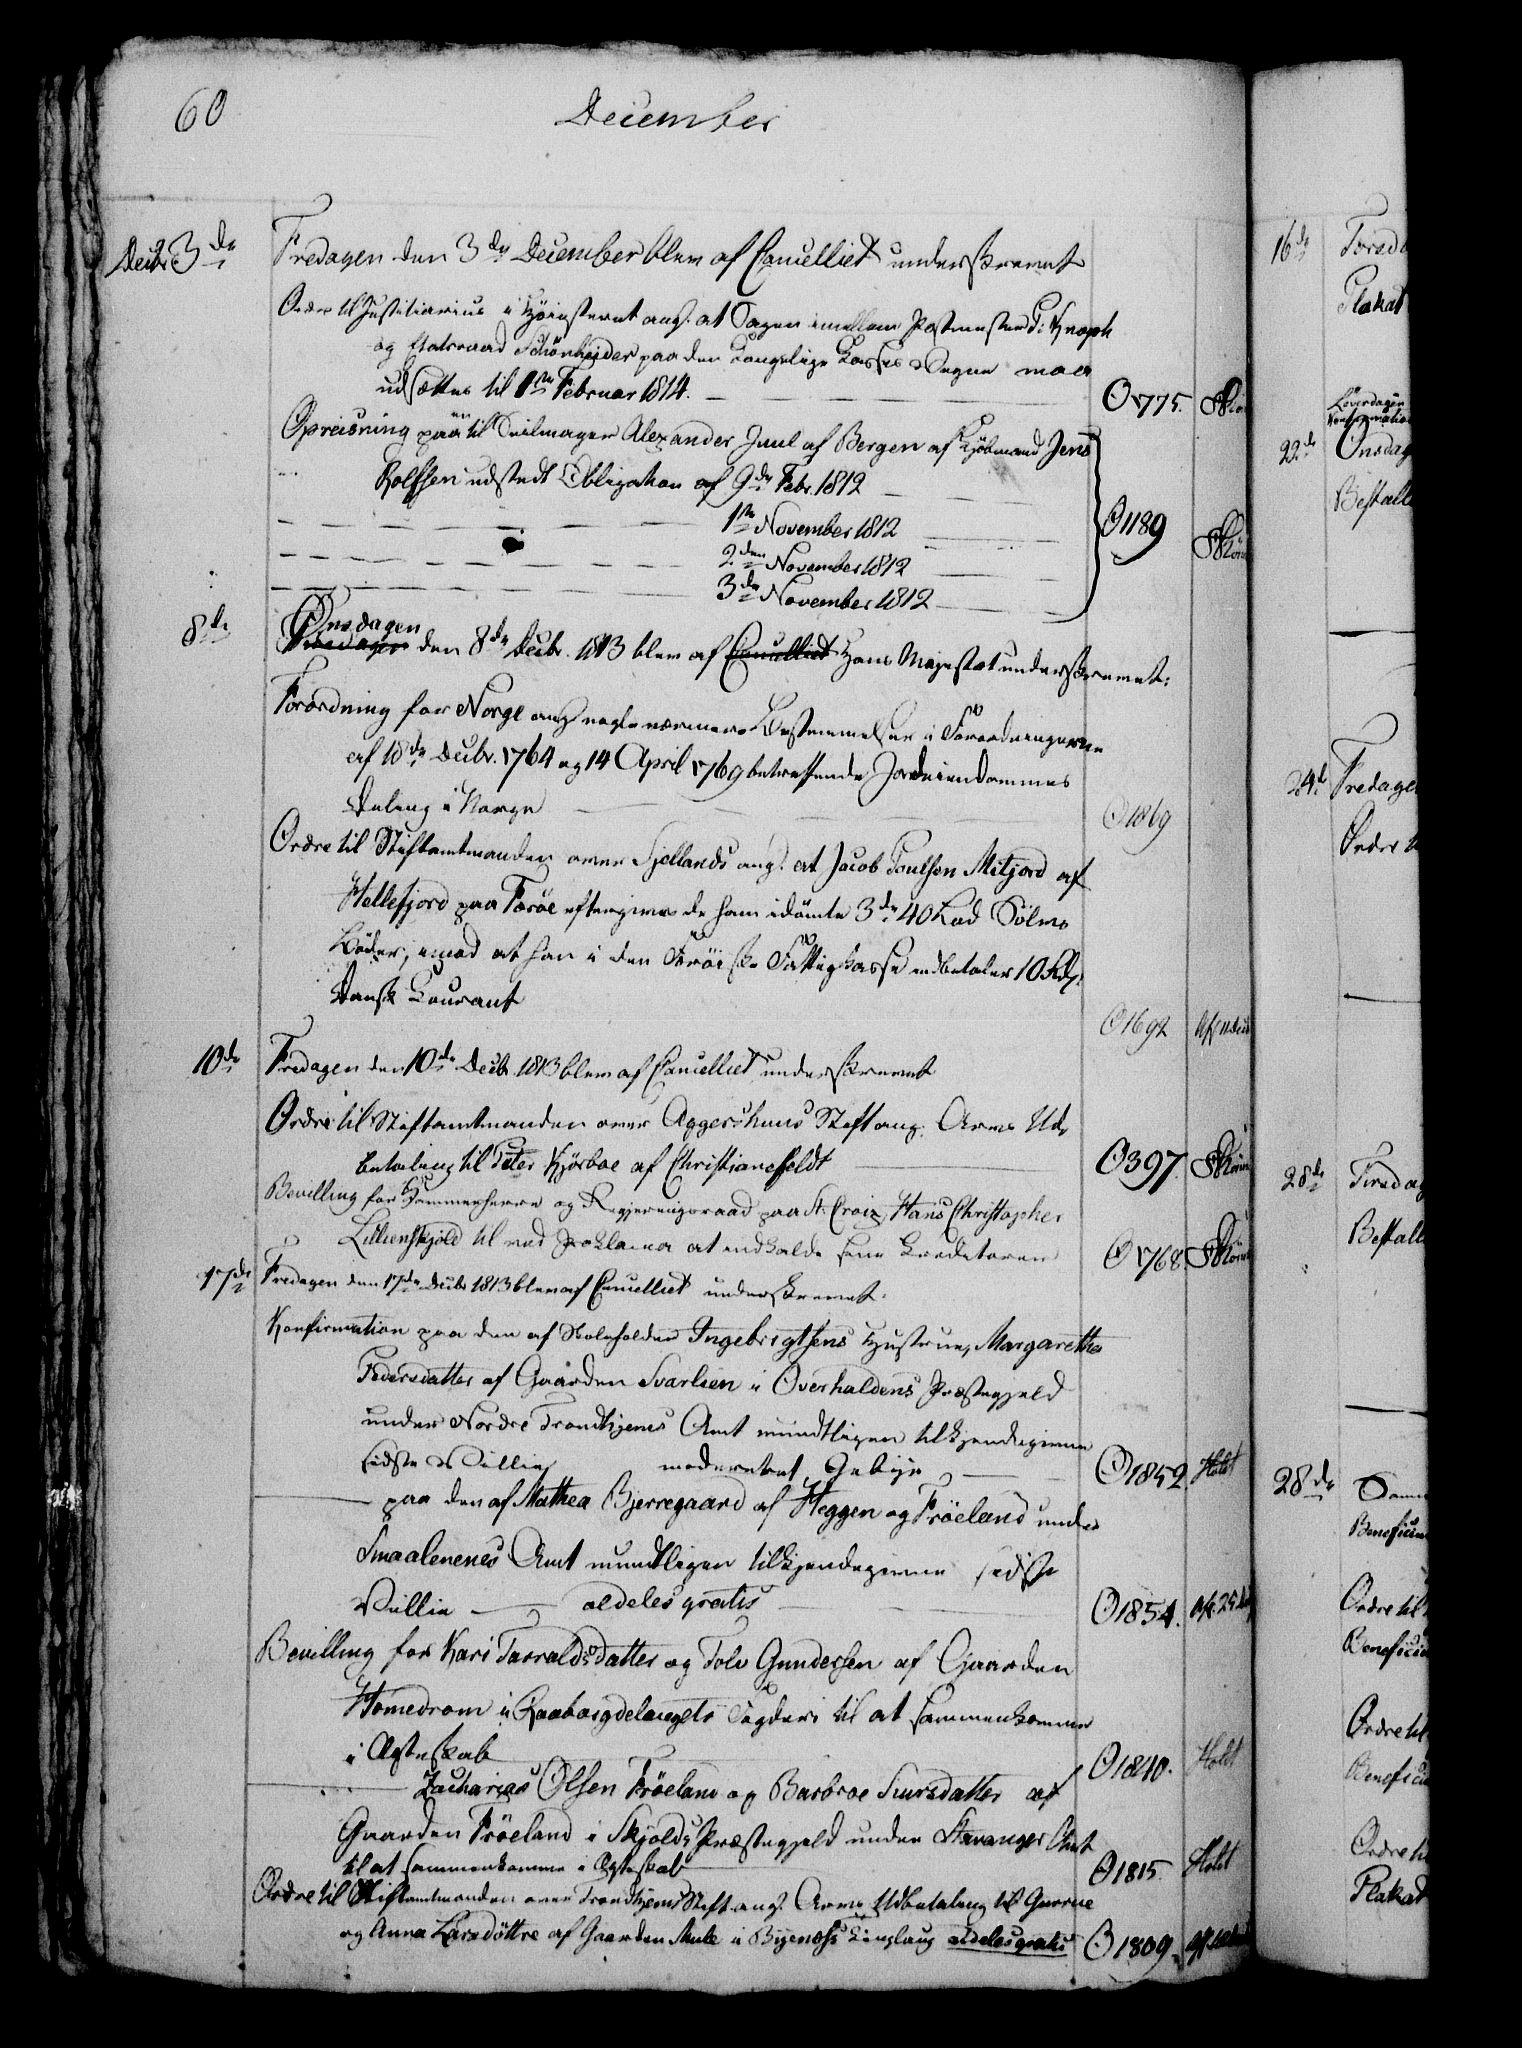 60
December
Decbr 3de
Fredagen den 3de December blev af Cancelliet underskrevet
Ordre til Justitiarius i Höiesteret ang. at Sagen imellem Postmester P: Knoph
og Etatsraad Schönheyder paa den Kongelige Casses Vegne maa
udsættes til 1ste Februar 1814.
O 775.
Opreisning paa en til Seilmager Alexander Juul af Bergen af Kjöbmand Jens
Rolfsen udstedt Obligation af 9de Febr. 1812
1ste November 1812
2den November 1812
3de November 1812
O 1189
8de
Onsdagen
den 8de Decbr. 1813 blev af Cancelliet Hans Majestæt underskrevet:
Forordning for Norge ang. nogle nærmere Bestemmelser i Forordningerne
af 18de Decbr. 1764 og 14 April 1769 betreffende Jordeiendommes
Deling i Norge
O 1869
Ordre til Stiftamtmanden over Sjellands ang. at Jacob Poulsen Mitjord af
Hellefjord paa Færöe eftergives de ham idömte 3de 40 Lod Sölvs
Böder, imod at han i den Færöiske Fattigkasse indbetaler 10 Rdlr.
Dansk Courant
O 1692
10de
Fredagen den 10de Decbr 1813 blev af Cancelliet underskrevet
Ordre til Stiftamtmanden over Aggershuus Stift ang. Arvs Ud-
betaling til Peter Kjörboe af Christiansfeldt
O 397.
Bevilling for Kammerherre og Regjeringsraad paa St. Croix, Hans Christopher
Lillienskjold til ved Proklama at indkalde sine Kreditorer
O 768.
17de
Fredagen den 17de Decbr 1813 blev af Cancelliet underskrevet.
Konfirmation paa den af Skoleholder Ingebrigtsens Hustrue, Margaretha
Pedersdatter af Gaarden Svarlien i Overhaldens Præstegjeld
under Nordre Trondhjems Amt mundtligen tilkjendegivne
sidste Villie moderatet Gebyr
O 1852. Holst
paa den af Mathea Bjerregaard af Heggen og Fröeland under
Smaalenenes Amt mundtligen tilkjendegivne sidste
Villie aldeles gratis
O 1854.
Bevilling for Kari Tarraldsdatter og Tolv Gundersen af Gaarden
Homedrom i Raabøigdelaugets Fogderi til at sammenkomme
i Ægteskab
O 1840. Holst
Zacharias Olsen Fröeland og Barbroe Siursdatter af
Gaarden Fröeland i Skjolds Præstegjeld under Stavanger Amt
til at sammenkomme i Ægteskab
O 1815. Holst
Ordre til Stiftamtmanden over Trondhjems Stift ang. Arvs Udbetaling til Gurrue
og Anna Larsdöttre af Gaarden Mule i Byenæss Tinglaug aldeles gratis
O 1809.
16de
Plakat
22de
Onsdag
24de
Fredagen
Ordre
28de
Tirsdag
28de
Ordre til
Ordre til
Ordre til
Plakat